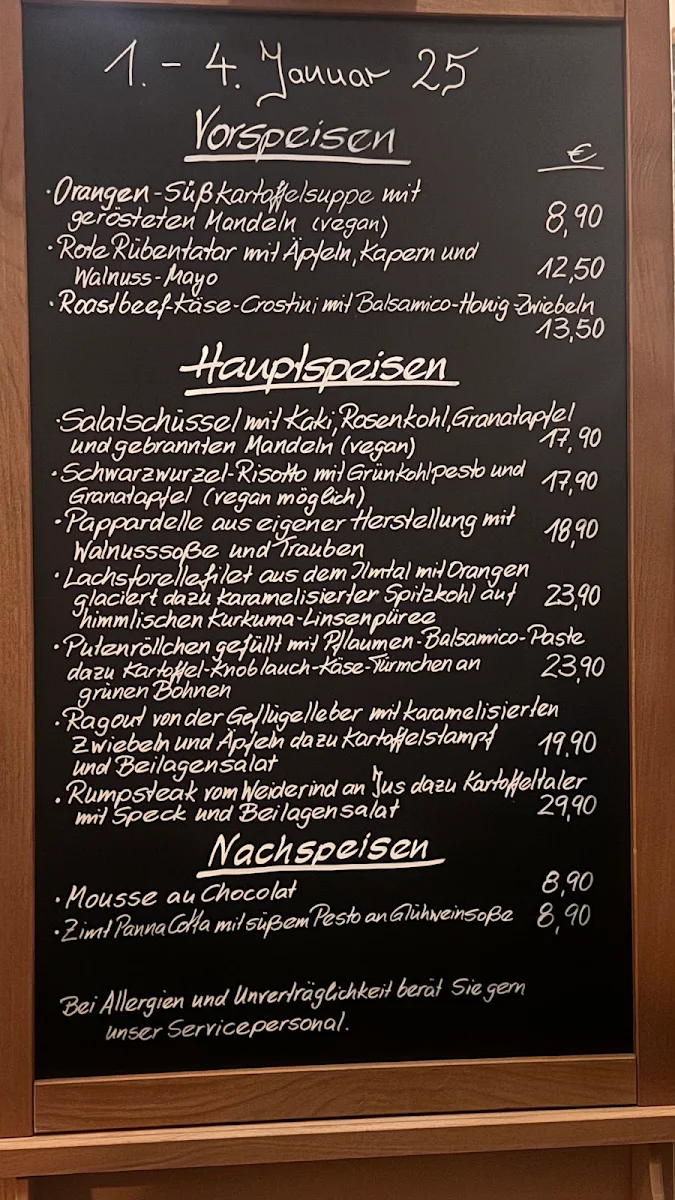 1. - 4. Januar 25
Vorspeisen
€
· Orangen-Süßkartoffelsuppe mit
gerösteten Mandeln (vegan) 8,90
· Rote Rübentatar mit Äpfeln, Kapern und
Walnuss-Mayo 12,50
· Roastbeef-Käse-Crostini mit Balsamico-Honig-Zwiebeln
13,50
Hauptspeisen
· Salatschüssel mit Kaki, Rosenkohl, Granatapfel
und gebrannten Mandeln (vegan) 17,90
· Schwarzwurzel-Risotto mit Grünkohlpesto und
Granatapfel (vegan möglich) 17,90
· Pappardelle aus eigener Herstellung mit
Walnusssoße und Trauben 18,90
· Lachsforellefilet aus dem Ilmtal mit Orangen
glaciert dazu karamelisierter Spitzkohl auf 23,90
himmlischen Kurkuma-Linsenpüree
· Putenröllchen gefüllt mit Pflaumen-Balsamico-Paste
dazu Kartoffel-Knoblauch-Käse-Türmchen an 23,90
grünen Bohnen
· Ragout von der Geflügelleber mit karamelisierten
Zwiebeln und Äpfeln dazu Kartoffelstampf 19,90
und Beilagensalat
· Rumpsteak vom Weiderind an Jus dazu Kartoffeltaler
mit Speck und Beilagensalat 29,90
Nachspeisen
· Mousse au Chocolat 8,90
· Zimt Panna Cotta mit süßem Pesto an Glühweinsoße 8,90
Bei Allergien und Unverträglichkeit berät Sie gern
unser Servicepersonal.